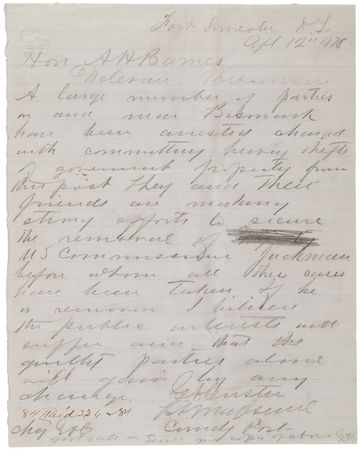 Fort Lincoln D.T.
Apl 12th 1876
Hon A H Barnes
Delevan Wisconsin
A large number of parties
in and near Bismark
have been arrested charged
with committing heavy thefts
of government property from
this post They and their
friends are making
strong efforts to secure
the removal of
US Commissioner Jackman
before whom all these cases
have been taken If he
is removed I believe
the public interests will
suffer and that the
guilty parties alone
will gain by any
change. G A Custer
Comdg Post
84 Paid 336